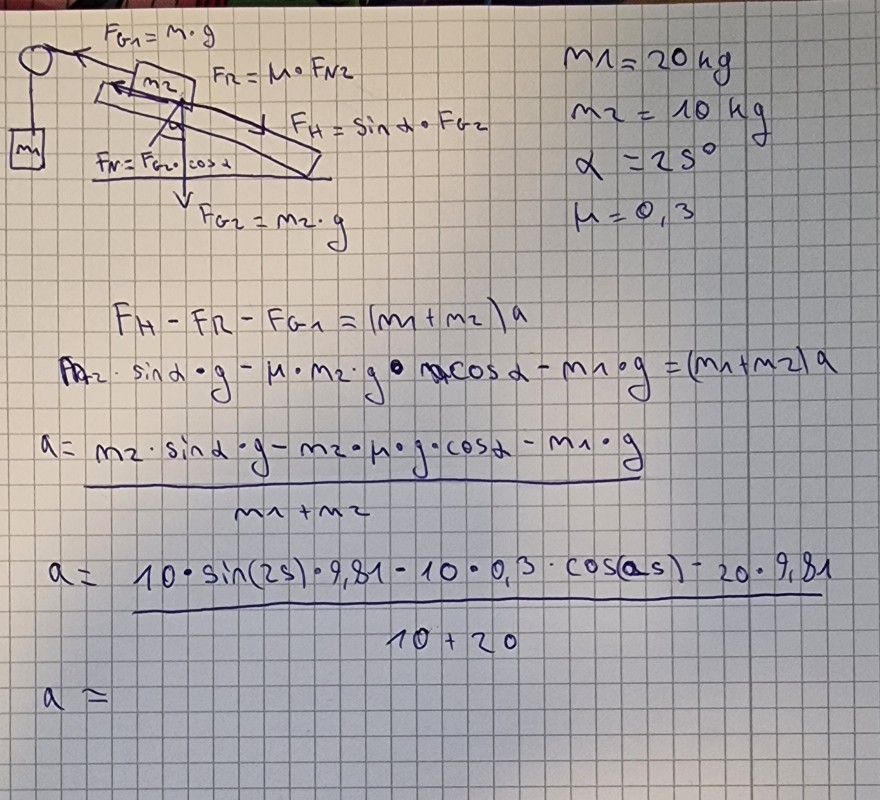 FG1 = m·g
m2
FR = μ·FN2
m1 = 20 kg
FH = sin α · FG2
m2 = 10 kg
m1
α
FN = FG2 · cos α
α = 25°
FG2 = m2 · g
μ = 0,3
FH - FR - FG1 = (m1 + m2) a
m2 · sin α · g - μ · m2 · g · cos α - m1 · g = (m1 + m2) a
a = m2 · sin α · g - m2 · μ · g · cos α - m1 · g
m1 + m2
a = 10 · sin(25) · 9,81 - 10 · 0,3 · cos(25) - 20 · 9,81
10 + 20
a =